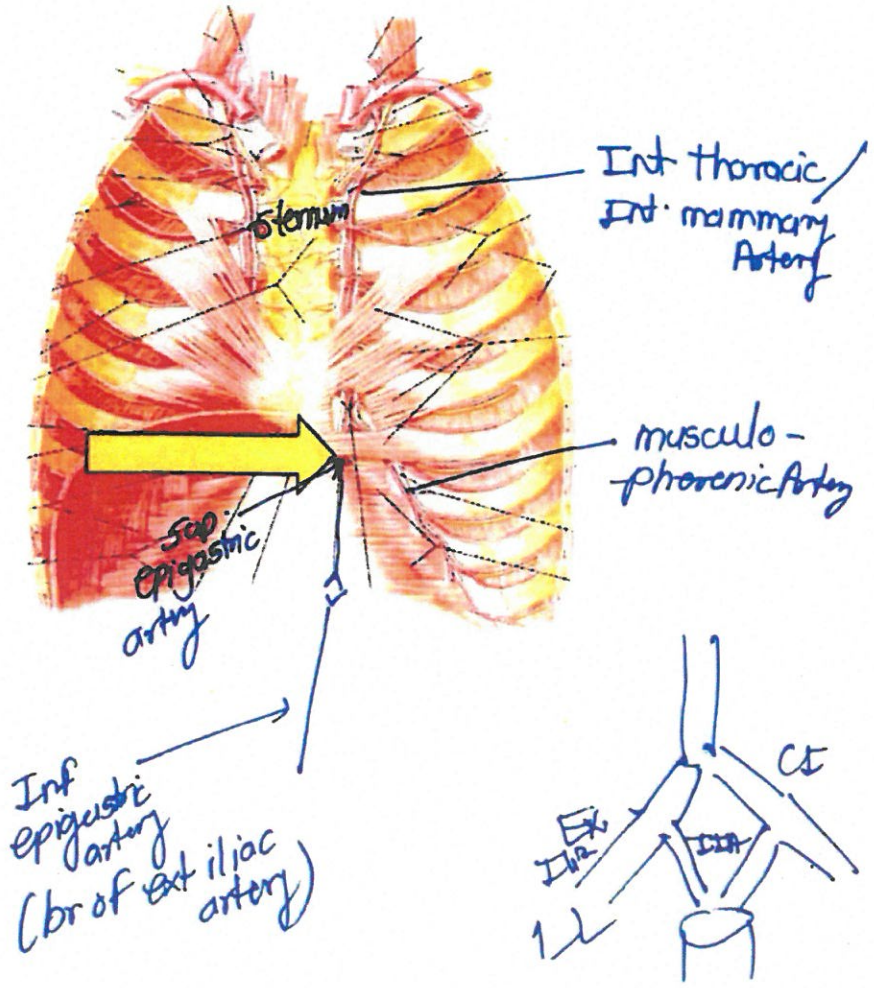 Sternum
Int thoracic /
Int. mammary
Artery
musculo-
phrenic Artery
Sup.
epigastric
artery
Inf
epigastric
artery
(br of ext iliac
artery)
CI
Ex
IIA